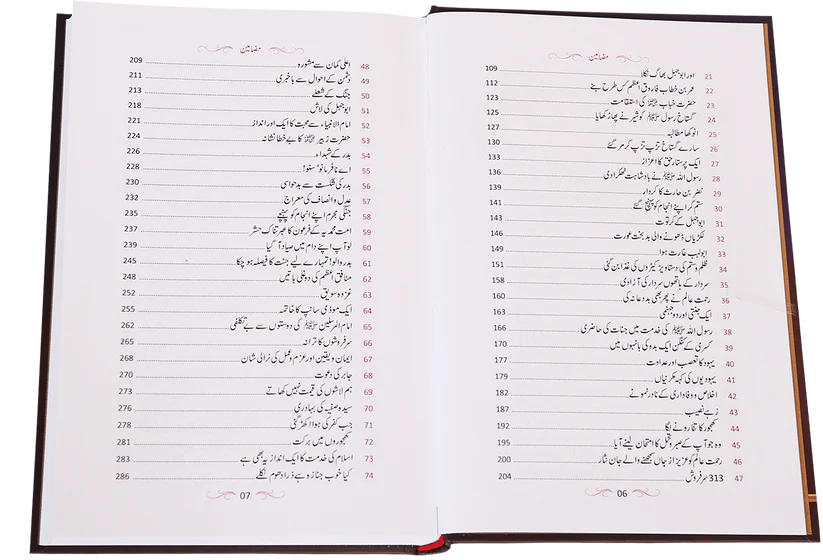 مضامین
21 اور ابوجہل بھاگ نکلا 109
22 عمر بن خطاب فاروق اعظم کس طرح بنے 112
23 حضرت خباب ﷜ کی استقامت 123
24 گستاخ رسول ﷺ کو شیر نے پھاڑ کھایا 125
25 انوکھا مطالبہ 127
26 سارے گستاخ تڑپ تڑپ کر مر گئے 130
27 ایک پرستار حق کا اعزاز 133
28 رسول اللہ ﷺ نے بادشاہت ٹھکرا دی 136
29 نضر بن حارث کا کردار 139
30 ستم گر اپنے انجام کو پہنچ گئے 141
31 ابوجہل کے کرتوت 143
32 لکڑیاں ڈھونے والی بدبخت عورت 146
33 ابولہب غارت ہوا 149
34 ظلم و ستم کی دستاویز کیڑوں کی غذا بن گئی 151
35 سردار کے ہاتھوں سردار کی آزادی 158
36 رحمت عالم نے پھر بھی بددعا نہ کی 160
37 ایک جنتی اور دو جہنمی 163
38 رسول اللہ ﷺ کی خدمت میں جنات کی حاضری 166
39 کسریٰ کے کنگن ایک بدو کی بانہوں میں 170
40 یہود کا تعصب اور عداوت 177
41 یہودیوں کی کہہ مکرنیاں 179
42 اخلاص و وفاداری کے نادر نمونے 182
43 زہے نصیب 187
44 کھجور کا تنا رونے لگا 192
45 وہ جو آپ کے صبر و تحمل کا امتحان لینے آیا 195
46 رحمت عالم کو عزیز از جاں سمجھنے والے جان نثار 200
47 313 سرفروش 204
06
مضامین
48 اعلیٰ کمان سے مشورہ 209
49 دشمن کے احوال سے باخبری 211
50 جنگ کے شعلے 213
51 ابوجہل کی لاش 218
52 امام الانبیاء سے محبت کا ایک اور انداز 221
53 حضرت زبیر ﷜ کا بے خطا نشانہ 224
54 بدر کے شہداء 226
55 اے نافرمانو! سنو! 228
56 بدر کی شکست سے بدحواسی 230
57 عدل و انصاف کی معراج 232
58 جنگی مجرم اپنے انجام کو پہنچے 235
59 امت محمدیہ کے فرعون کا عبرتناک حشر 237
60 لو آپ اپنے دام میں صیاد آ گیا 239
61 بدر والو! تمہارے لیے جنت کا فیصلہ ہو چکا 245
62 منافق اعظم کی دوغلی باتیں 248
63 غزوہ سویق 252
64 ایک موذی سانپ کا خاتمہ 255
65 امام المرسلین ﷺ کی دوستوں سے بے تکلفی 262
66 سرفروشوں کا ترانہ 265
67 ایمان و یقین اور عزم و عمل کی نرالی شان 268
68 جابر کی دعوت 270
69 ہم لاشوں کی قیمت نہیں کھاتے 273
70 سیدہ صفیہ کی بہادری 276
71 جب کفر کی ہوا اکھڑ گئی 278
72 کھجوروں میں برکت 281
73 اسلام کی خدمت کا ایک انداز یہ بھی ہے 283
74 کیا خوب جنازہ ہے ذرا دھوم نکلے 286
07